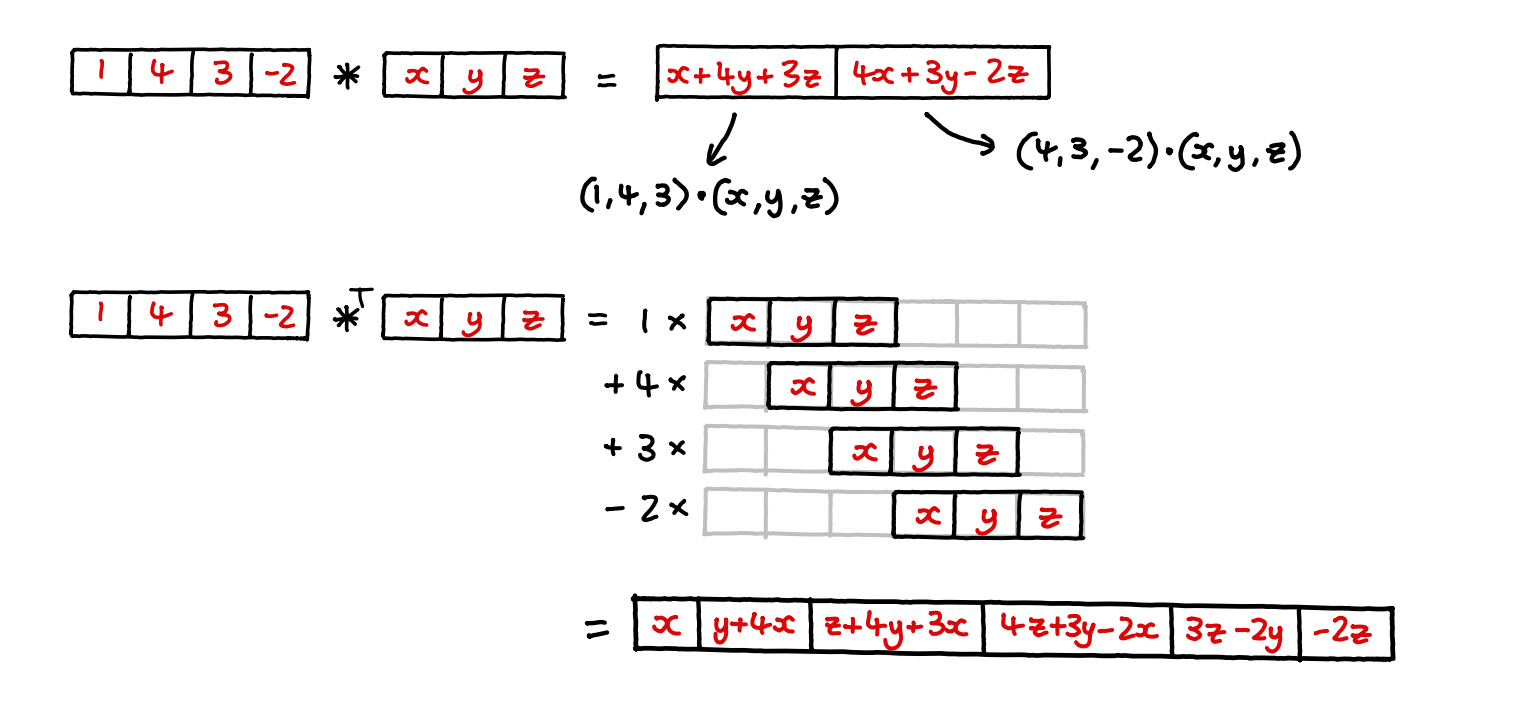 1 4 3 -2 * x y z = x+4y+3z 4x+3y-2z
(4,3,-2)·(x,y,z)
(1,4,3)·(x,y,z)
1 4 3 -2 *T x y z = 1 × x y z
+ 4 × x y z
+ 3 × x y z
- 2 × x y z
= x y+4x z+4y+3x 4z+3y-2x 3z-2y -2z